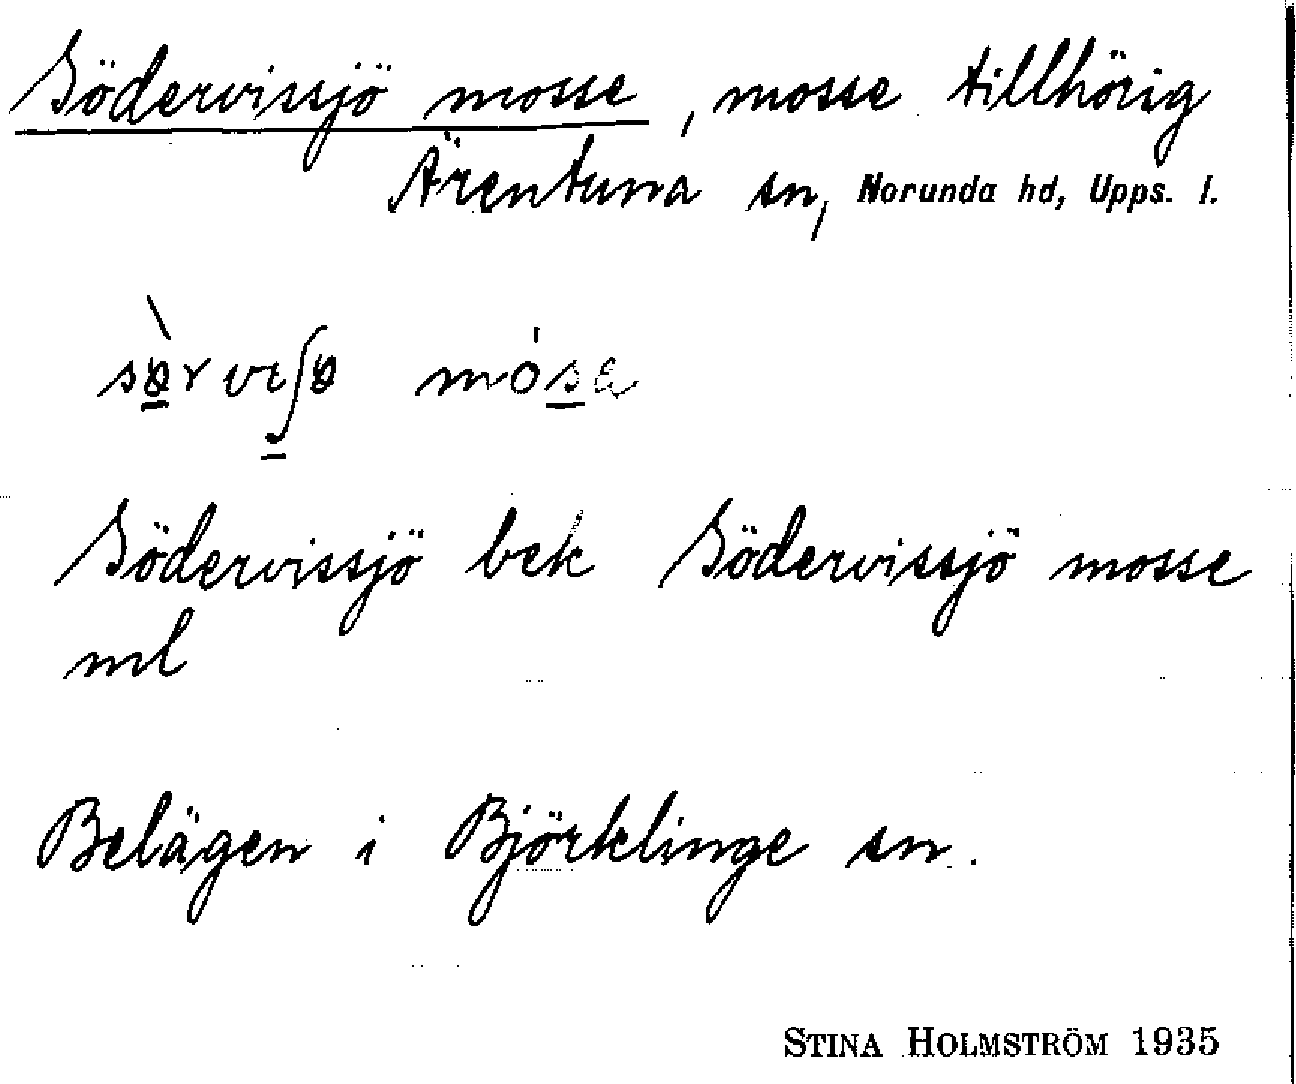 Södervissjö mosse, mosse tillhörig
Ärentuna sn, Norunda hd, Upps. l.
sø̀rviʃø mósa
Södervissjö bek Södervissjö mosse
ml
Belägen i Björklinge sn.
STINA HOLMSTRÖM 1935